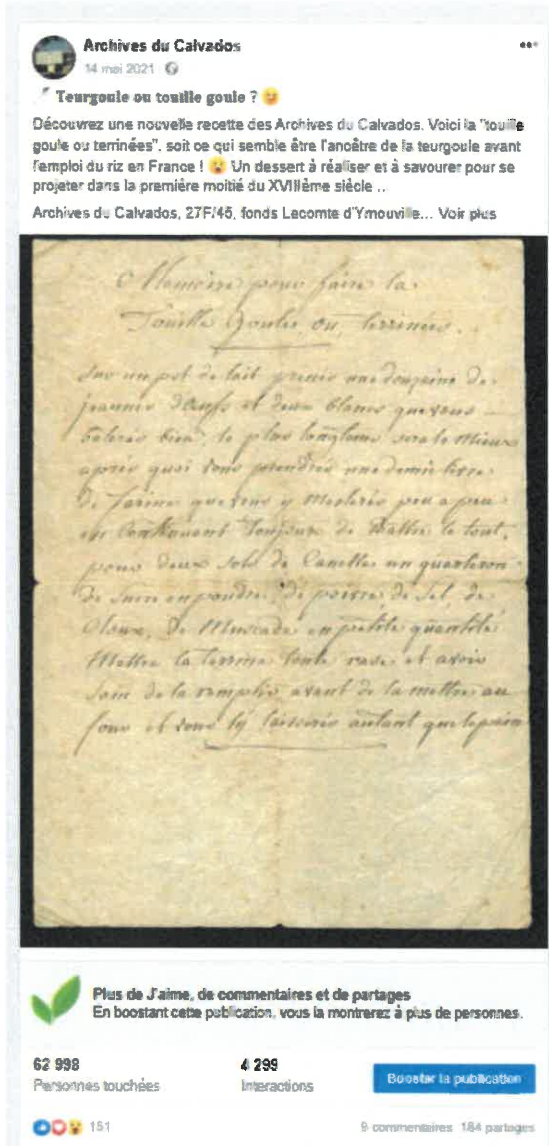 Archives du Calvados
14 mai 2021
Teurgoule ou touille goule ?
Découvrez une nouvelle recette des Archives du Calvados. Voici la "touille
goule ou terrinées", soit ce qui semble être l'ancêtre de la teurgoule avant
l'emploi du riz en France ! Un dessert à réaliser et à savourer pour se
projeter dans la première moitié du XVIIIème siècle ...
Archives du Calvados, 27F/45, fonds Lecomte d'Ymouville... Voir plus
Memoire pour faire la
Touille Goulee, ou, terrinées.
Sur un pot de lait prenés une douzaine de
jeaunes d'œufs et deux blancs que vous
baterés bien, le plus longtems sera le Mieux
aprés quoi vous prendrés une demie livre
de farine que vous y Meslerés peu a peu
en Continuant Toujours de Battre le tout,
pour deux sols de Canelle un quarteron
de sucre en poudre, de poivre de sel, de
Cloux, de Muscade en petite quantité
Mettre la terrine toute rase et avoir
soin de la remplir avant de la mettre au
four et vous l'y laisserés autant que le pain
Plus de J'aime, de commentaires et de partages
En boostant cette publication, vous la montrerez à plus de personnes.
62 998
Personnes touchées
4 299
Interactions
Booster la publication
151
9 commentaires 184 partages